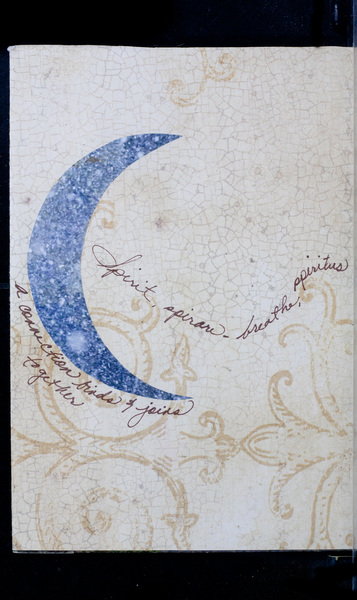 Spirit, spirare - breathe, spiritus
a connection binds & joins
together